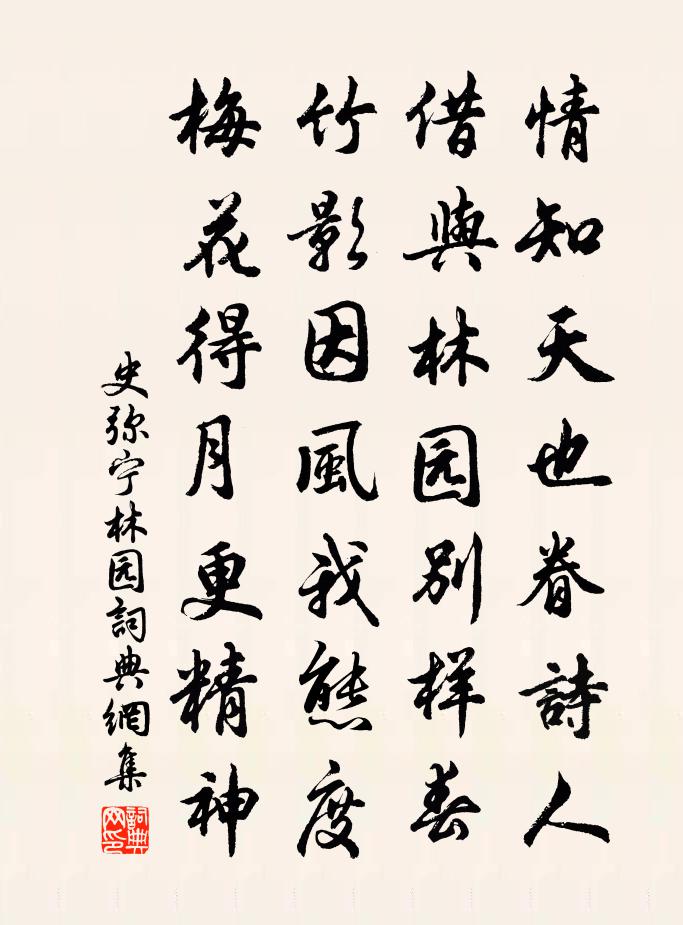 情知天也眷詩人
借與林园别样春
竹影因風我態度
梅花得月更精神
史弥宁林园詞典網集
詞典
网印